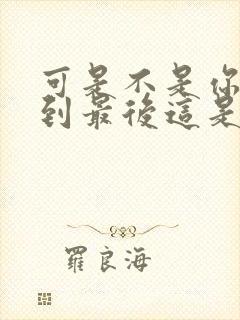 可是不是你
到最後這是
羅良海